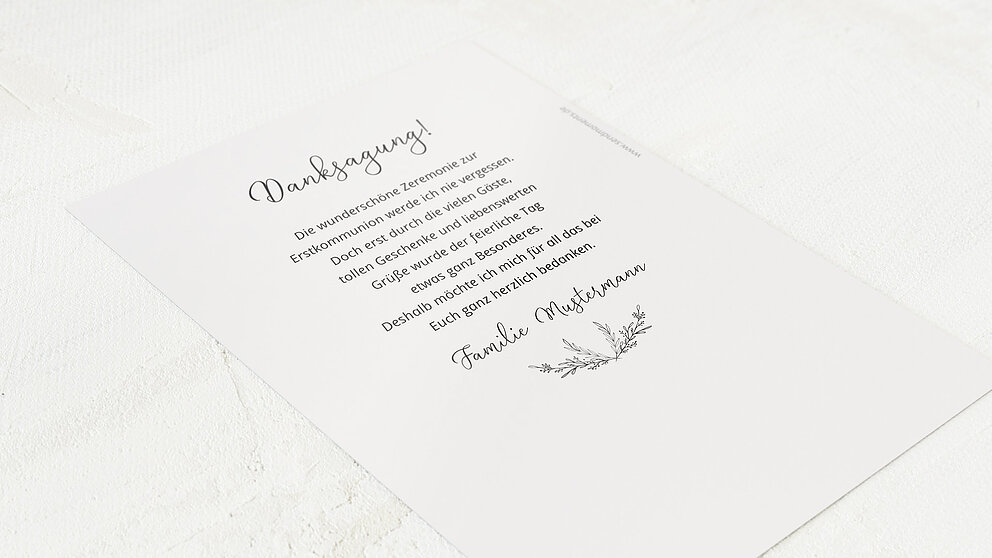 Danksagung!
Die wunderschöne Zeremonie zur
Erstkommunion werde ich nie vergessen.
Doch erst durch die vielen Gäste,
tollen Geschenke und liebenswerten
Grüße wurde der feierliche Tag
etwas ganz Besonderes.
Deshalb möchte ich mich für all das bei
Euch ganz herzlich bedanken.
Familie Mustermann
www.sendmoments.de